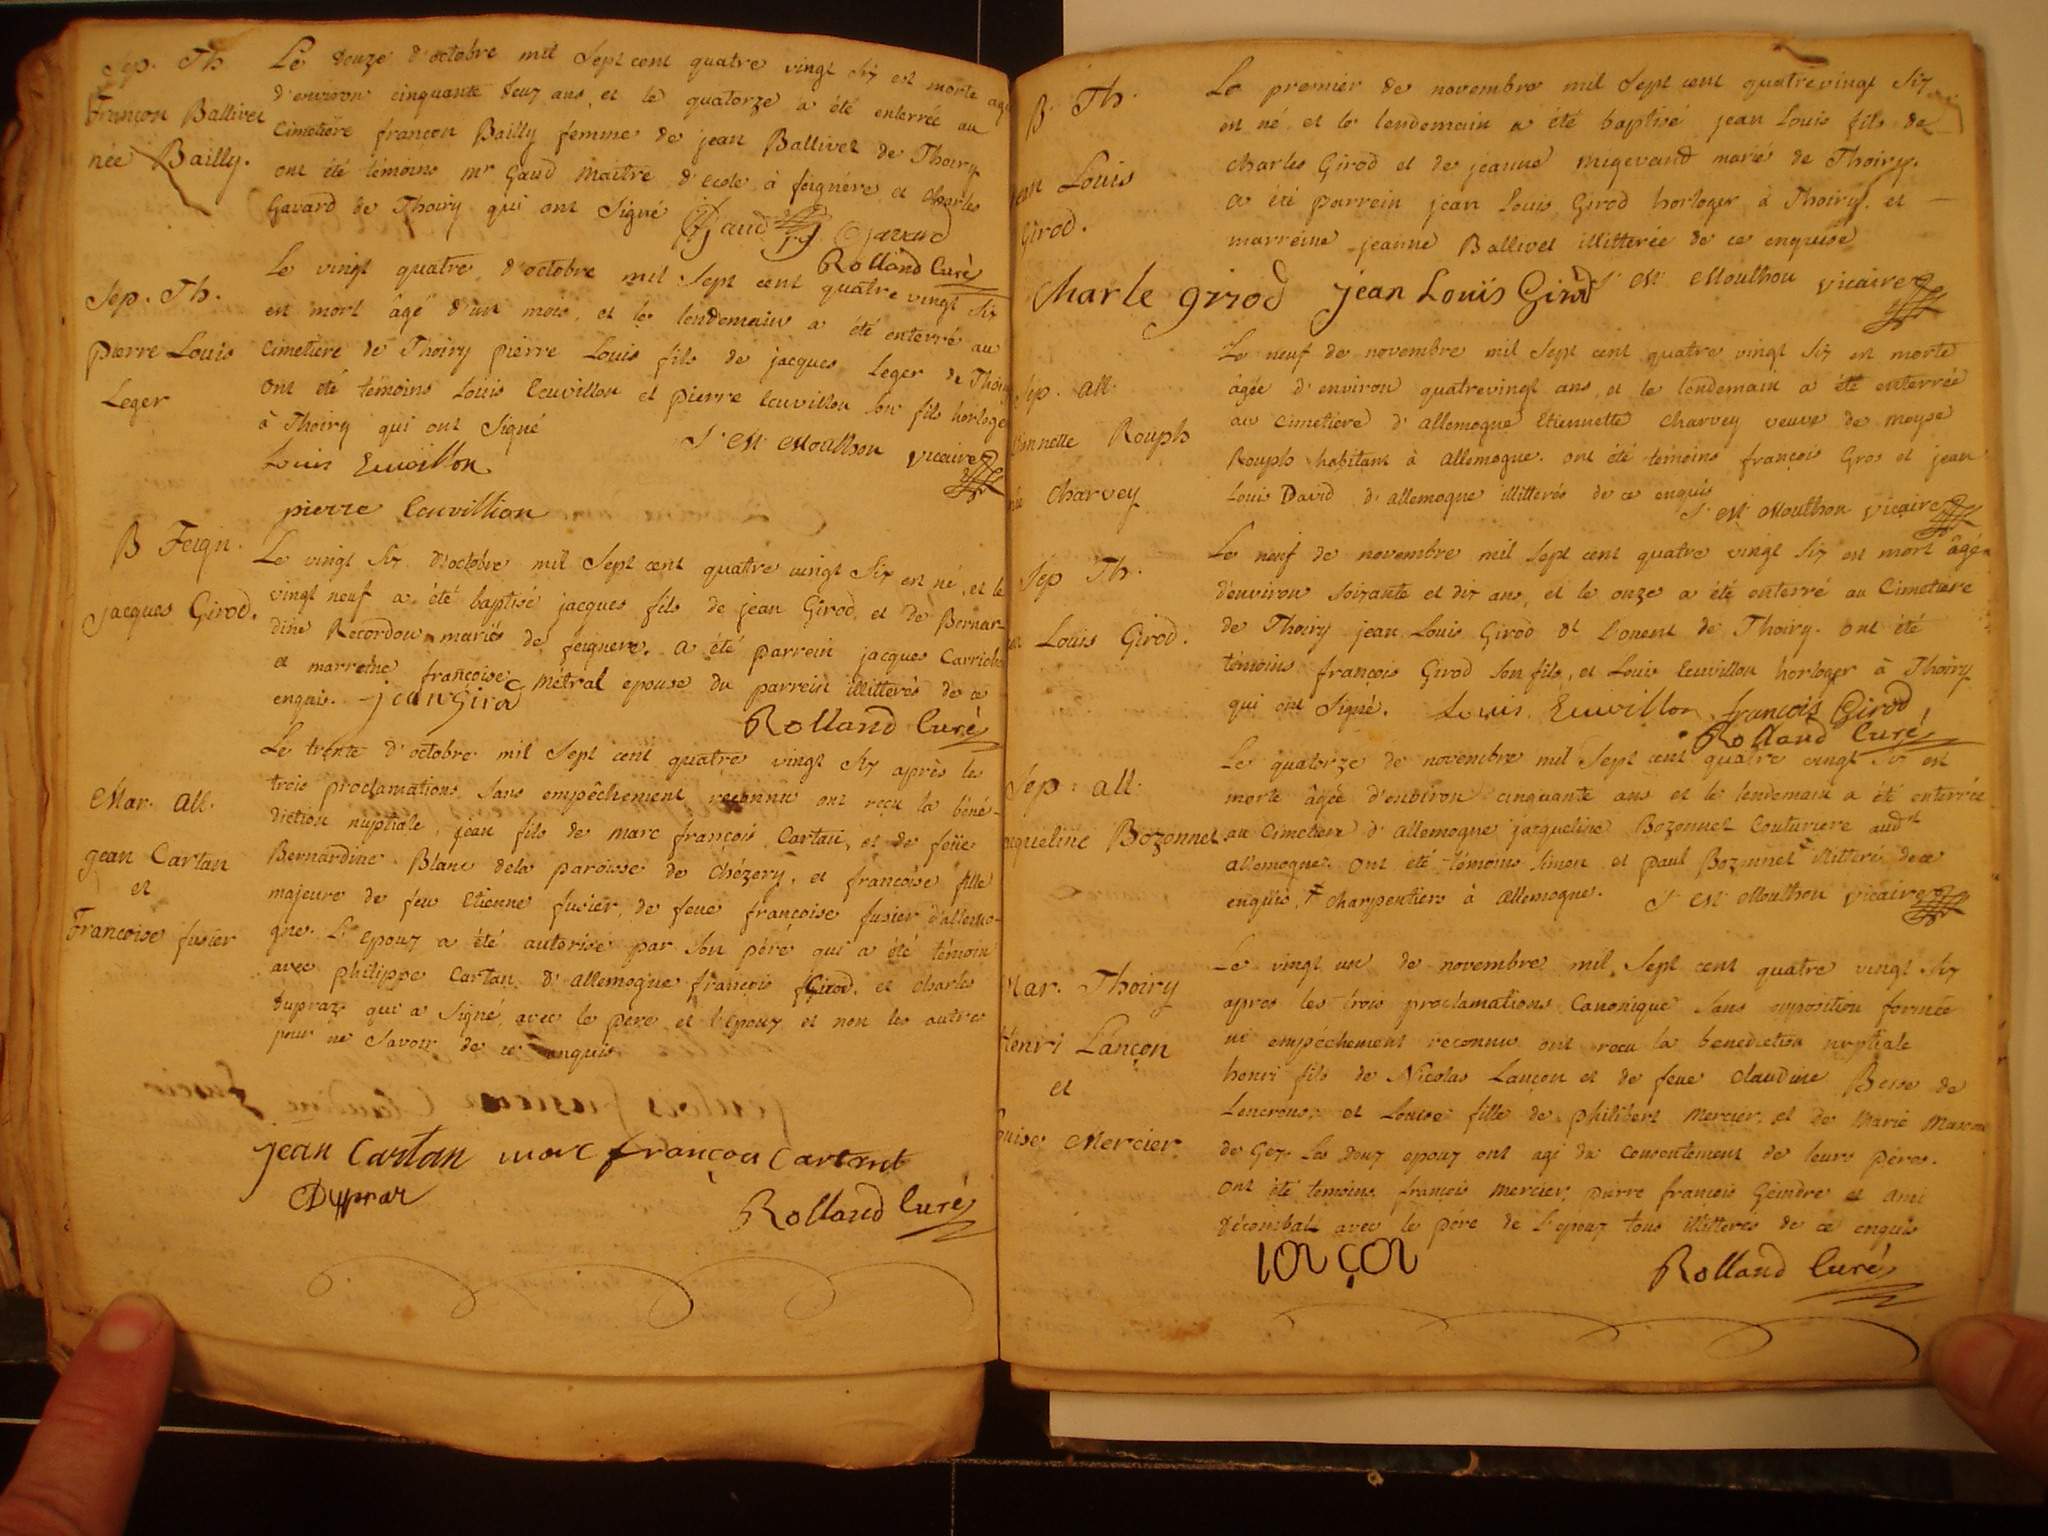 Sep. Th
françon Ballivet
née Bailly.
Le douze d'octobre mil sept cent quatre vingt six est morte agé
d'environ cinquante deux ans, et le quatorze a été enterrée au
Cimetière françon Bailly femme de jean Ballivet de Thoiry
ont été témoins mr Gaud maitre d'ecole à feignére et charles
Gavard de Thoiry qui ont Signé Gaud Gavard
Rolland Curé
Sep. Th.
pierre Louis
Leger
Le vingt quatre d'octobre mil sept cent quatre vingt six
est mort âgé d'un mois, et le lendemain a été enterré au
Cimetiere de Thoiry pierre Louis fils de jacques Leger de Thoiry
ont été témoins Louis Ecuvillon et pierre Ecuvillon son fils horloger
à Thoiry qui ont signé J' M Mouthon vicaire
Louis Ecuvillon
pierre Ecuvillion
B Feign.
jacques Girod.
Le vingt six d'octobre mil sept cent quatre vingt six est né, et le
vingt neuf a été baptisé jacques fils de jean Girod, et de Bernar-
dine Recordon mariés de feignere. a été parrein jacques Carrichon
et marreine françoise Métral epouse du parrein illitterés de ce
enquis. jean Girod
Rolland Curé
Mar. all.
jean Cartan
et
Francoise fusier
Le trente d'octobre mil sept cent quatre vingt six après les
trois proclamations sans empêchement reconnu ont reçu la béné-
diction nuptiale, jean fils de marc françois Cartan, et de feüe
Bernardine Blanc dela paroisse de chézery, et françoise fille
majeure de feu Etienne fusier, de feue françoise fusier d'allemo-
gne. L'epoux a été autorisé par son pére qui a été témoin
avec philippe Cartan d'allemogne françois Girod, et charles
dupraz qui a signé avec le pere et l'epoux et non les autres
pour ne savoir de ce enquis
jean Cartan marc françois Cartant
Duprar
Rolland Curé
B. Th.
jean Louis
Girod.
Le premier de novembre mil sept cent quatrevingt six
est né, et le lendemain a été baptisé jean Louis fils de
charles Girod et de jeanne migevand mariés de Thoiry.
a été parrein jean Louis Girod horloger à Thoiry. et
marreine jeanne Ballivet illitterée de ce enquise
Charle girod jean Louis Girod J' M Mouthon vicaire
Sep. all.
Etiennette Rouph
née Charvey
Le neuf de novembre mil sept cent quatre vingt six est morte
âgée d'environ quatrevingt ans, et le lendemain a été enterrée
au cimetiere d'allemogne Etiennette Charvey veuve de moyse
Rouph habitant à allemogne. ont été temoins françois Gros et jean
Louis David d'allemogne illitterés de ce enquis
J' M Mouthon vicaire
Sep Th.
jean Louis Girod.
Le neuf de novembre mil sept cent quatre vingt six est mort âgé
d'environ soixante et dix ans, et le onze a été enterré au Cimetiere
de Thoiry jean Louis Girod dt L'ouent de Thoiry. ont été
témoins françois Girod son fils, et Louis Ecuvillon horloger à Thoiry
qui ont signé. Louis Ecuvillon françois Girod
Rolland Curé
Sep. all.
jacqueline Bozonnet
Le quatorze de novembre mil sept cent quatre vingt six est
morte âgée d'environ cinquante ans et le lendemain a été enterrée
au Cimetiere d'allemogne jacqueline Bozonnet couturiere audt
allemogne. ont été témoins simon et paul Bozonnet + illitteré de ce
enquis, + charpentiers à allemogne. J' M Mouthon vicaire
Mar. Thoiry
Henri Lançon
et
Louise Mercier.
Le vingt un de novembre mil sept cent quatre vingt six
apres les trois proclamations Canonique sans opposition formée
ni empêchement reconnu ont reçu la benediction nuptiale
henri fils de Nicolas Lançon et de feue claudine Besse de
Lencrans, et Louise fille de philibert mercier, et de Marie
de Gex. Les deux epoux ont agi du consentement de leurs péres.
ont été temoins françois mercier, pierre françois Geindre et ami
décombat avec le pére de L'epoux tous illitterés de ce enquis
lançon
Rolland Curé